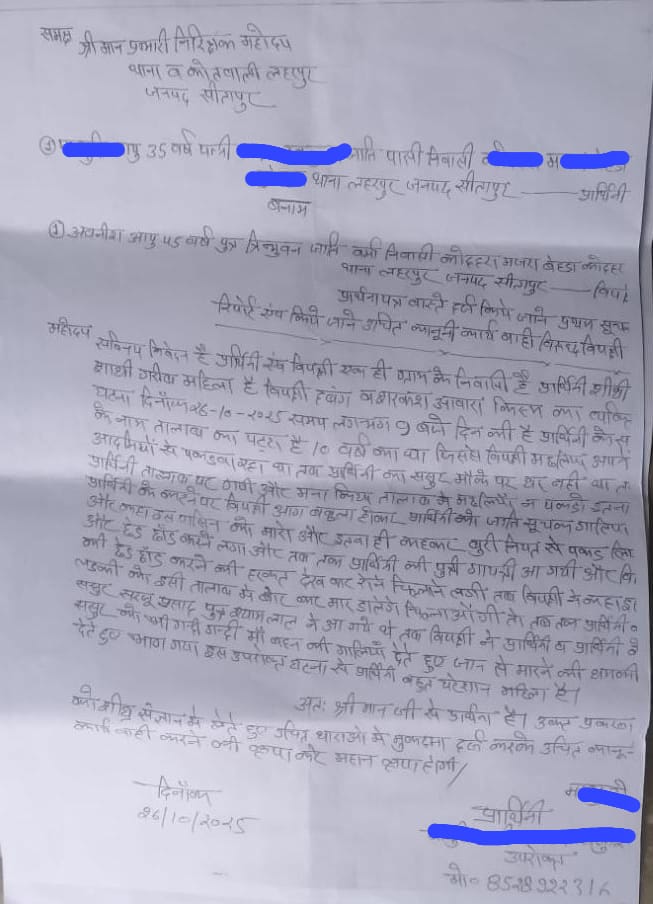 समक्ष श्रीमान प्रभारी निरिक्षक महोदय
थाना व कोतवाली लहरपुर
जनपद सीतापुर
आयु 35 वर्ष पत्नी जाति पासी निवासी
थाना लहरपुर जनपद सीतापुर —— प्रार्थिनी
बनाम
① अवनीश आयु 45 वर्ष पुत्र त्रिभुवन जाति वर्मा निवासी कोदहरा मजरा बेहडा कोदहर
थाना लहरपुर जनपद सीतापुर —— विप
प्रार्थनापत्र वास्ते दर्ज किये जाने प्रथम सूच
रिपोर्ट एवं किये जाने उचित कानूनी कार्य वाही विरुद्ध विपक्षी
महोदय सविनय निवेदन है प्रार्थिनी एवं विपक्षी एक ही ग्राम के निवासी है प्रार्थिनी सीधी
साधी गरीब महिला है विपक्षी दबंग व सरकश आवारा किस्म का व्यक्ति
घटना दिनाँक 26-10-2025 समय लगभग 9 बजे दिन की है प्रार्थिनी के स
के नाम तालाब का पट्टा है 10 वर्षो का था जिससे विपक्षी मछलियां अपने
आदमियों से पकडवा रहा था तब प्रार्थिनी का ससुर मौके पर घर नही था त
प्रार्थिनी तालाब पर गयी और मना किया तालाब से मछलियां न पकडो इतना
प्रार्थिनी के कहने पर विपक्षी आग बबूला होकर प्रार्थिनी को जाति सूचक गालियां
और कहा इस पासिन को मारो और इतना ही कहकर बुरी नियत से पकड लिया
और छेड छाँड करने लगा और तब तक प्रार्थिनी की पुत्री गायत्री आ गयी और वि
की छेड छाँड करने की हरकत देख कर रोने चिल्लाने लगी तब विपक्षी ने कहा इस
लडकी को इसी तालाब में काट कर मार डालेंगे चिल्लाओगी तो तब तक प्रार्थिनी क
ससुर सरजू प्रसाद पुत्र श्यामलाल ने आ गये थे तब विपक्षी ने प्रार्थिनी व प्रार्थिनी के
ससुर को भी गन्दी गन्दी माँ बहन की गालियाँ देते हुए जान से मारने की धमकी
देते हुए भाग गया इस उपरोक्त घटना से प्रार्थिनी बहुत परेशान महिला है।
अतः श्री मान जी से प्रार्थना है। उक्त प्रकरण
को शीघ्र संज्ञान में लेते हुए उचित धाराओ में मुकदमा दर्ज करके उचित कानू-
कार्य वाही करने की कृपा करे महान कृपा होगी/
दिनाँक
26/10/2025
प्रार्थिनी
उपरोक्त
मो० 8528922316